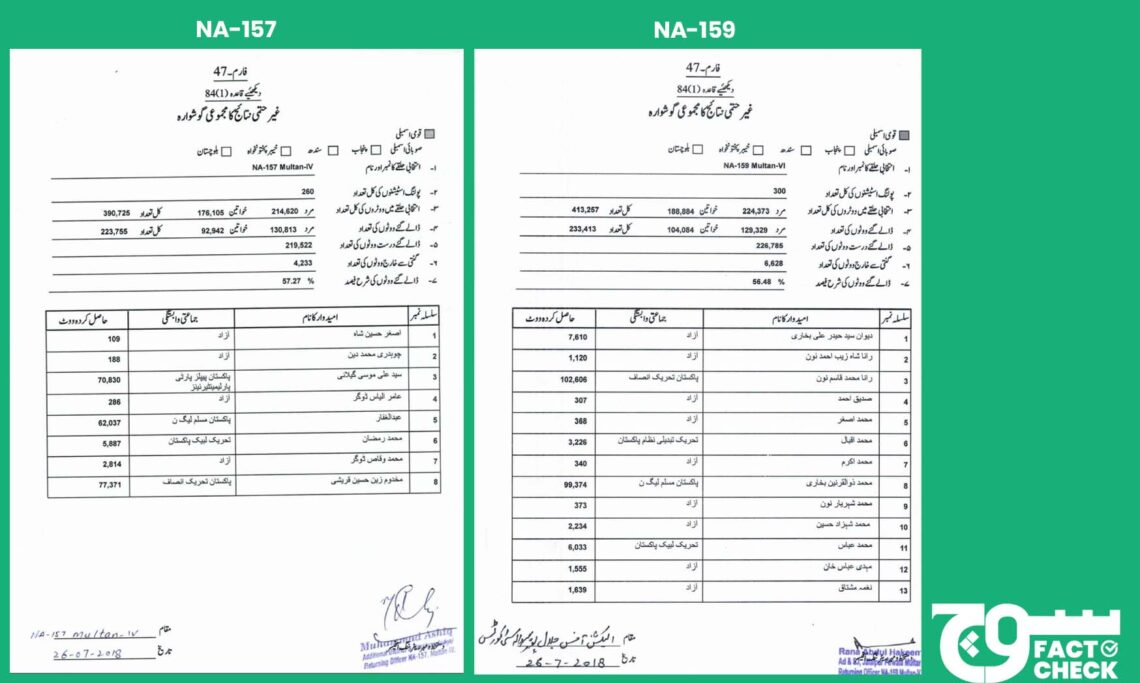 NA-157
فارم-47
دیکھئے قاعدہ (1)84
غیر حتمی نتائج کا مجموعی گوشوارہ
قومی اسمبلی
صوبائی اسمبلی پنجاب سندھ خیبر پختونخواہ بلوچستان
۱- انتخابی حلقے کا نمبر اور نام NA-157 Multan-IV
۲- پولنگ اسٹیشنوں کی کل تعداد 260
۳- انتخابی حلقے میں ووٹروں کی کل تعداد مرد 214,620 خواتین 176,105 کل تعداد 390,725
۴- ڈالے گئے ووٹوں کی تعداد مرد 130,813 خواتین 92,942 کل تعداد 223,755
۵- ڈالے گئے درست ووٹوں کی تعداد 219,522
۶- گنتی سے خارج ووٹوں کی تعداد 4,233
۷- ڈالے گئے ووٹوں کی شرح فیصد 57.27 %
سلسلہ نمبر امیدوار کا نام جماعتی وابستگی حاصل کردہ ووٹ
1 اصغر حسین شاہ آزاد 109
2 چوہدری محمد دین آزاد 188
3 سید علی موسی گیلانی پاکستان پیپلز پارٹی پارلیمینٹیرینز 70,830
4 عامر الیاس ڈوگر آزاد 286
5 عبدالغفار پاکستان مسلم لیگ ن 62,037
6 محمد رمضان تحریک لبیک پاکستان 5,887
7 محمد وقاص ڈوگر آزاد 2,814
8 مخدوم زین حسین قریشی پاکستان تحریک انصاف 77,371
مقام NA-157 Multan-IV
تاریخ 26-07-2018
Muhammad Ashfiq
Returning Officer NA-157, Multan-IV.
NA-159
فارم-47
دیکھئے قاعدہ (1)84
غیر حتمی نتائج کا مجموعی گوشوارہ
قومی اسمبلی
صوبائی اسمبلی پنجاب سندھ خیبر پختونخواہ بلوچستان
۱- انتخابی حلقے کا نمبر اور نام NA-159 Multan-VI
۲- پولنگ اسٹیشنوں کی کل تعداد 300
۳- انتخابی حلقے میں ووٹروں کی کل تعداد مرد 224,373 خواتین 188,884 کل تعداد 413,257
۴- ڈالے گئے ووٹوں کی تعداد مرد 129,329 خواتین 104,084 کل تعداد 233,413
۵- ڈالے گئے درست ووٹوں کی تعداد 226,785
۶- گنتی سے خارج ووٹوں کی تعداد 6,628
۷- ڈالے گئے ووٹوں کی شرح فیصد 56.48 %
سلسلہ نمبر امیدوار کا نام جماعتی وابستگی حاصل کردہ ووٹ
1 دیوان سید حیدر علی بخاری آزاد 7,610
2 رانا شاہ زیب احمد نون آزاد 1,120
3 رانا محمد قاسم نون پاکستان تحریک انصاف 102,606
4 صدیق احمد آزاد 307
5 محمد اصغر آزاد 368
6 محمد اقبال تحریک تبدیلی نظام پاکستان 3,226
7 محمد اکرم آزاد 340
8 محمد ذوالقرنین بخاری پاکستان مسلم لیگ ن 99,374
9 محمد شہریار نون آزاد 373
10 محمد شہزاد حسین آزاد 2,234
11 محمد عباس تحریک لبیک پاکستان 6,033
12 مہدی عباس خان آزاد 1,555
13 نغمہ مشتاق آزاد 1,639
مقام
تاریخ 26-7-2018
Rana Abdul Hakeem
Returning Officer NA-159 Multan
سچ
FACT
CHECK